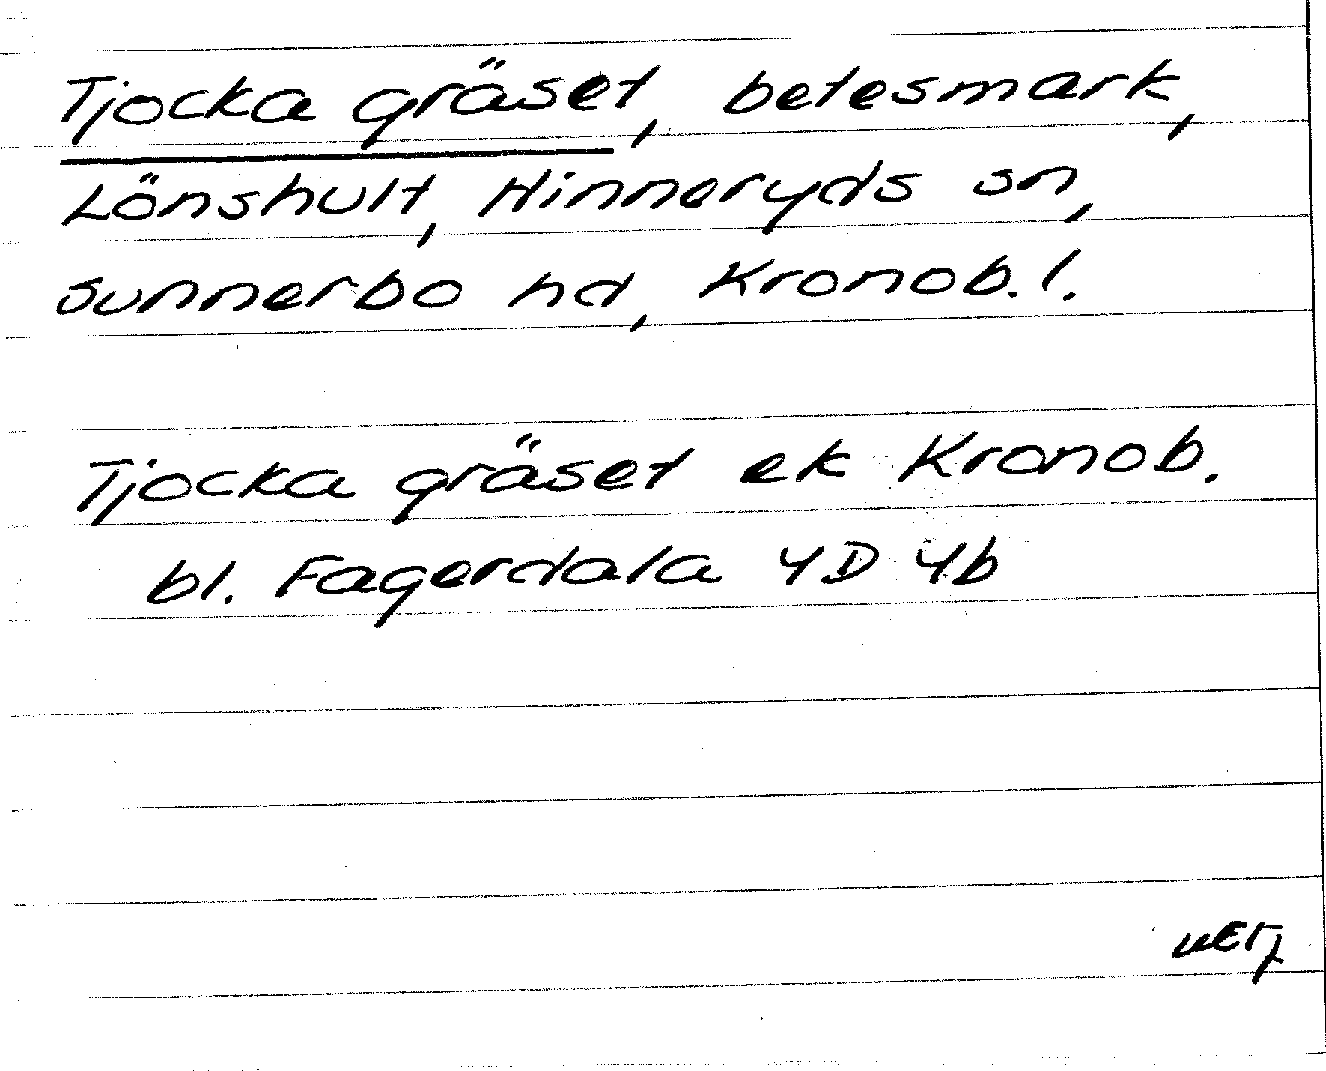 Tjocka gräset, betesmark,
Lönshult, Hinneryds sn,
Sunnerbo hd, Kronob. l.
Tjocka gräset ek Kronob.
bl. Fagerdala 4D 4b